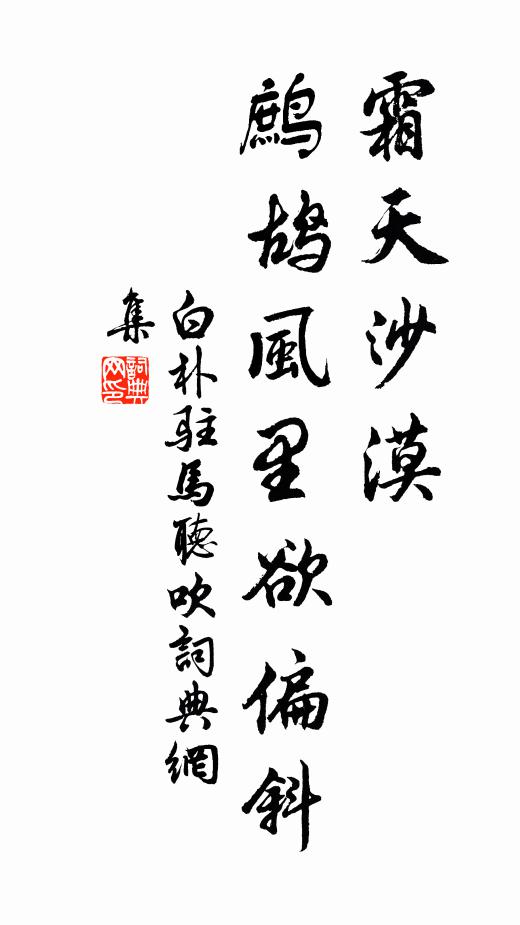 霜天沙漠
鷓鴣風里欲偏斜
白朴駐馬聽吹詞典網
集
詞典網印